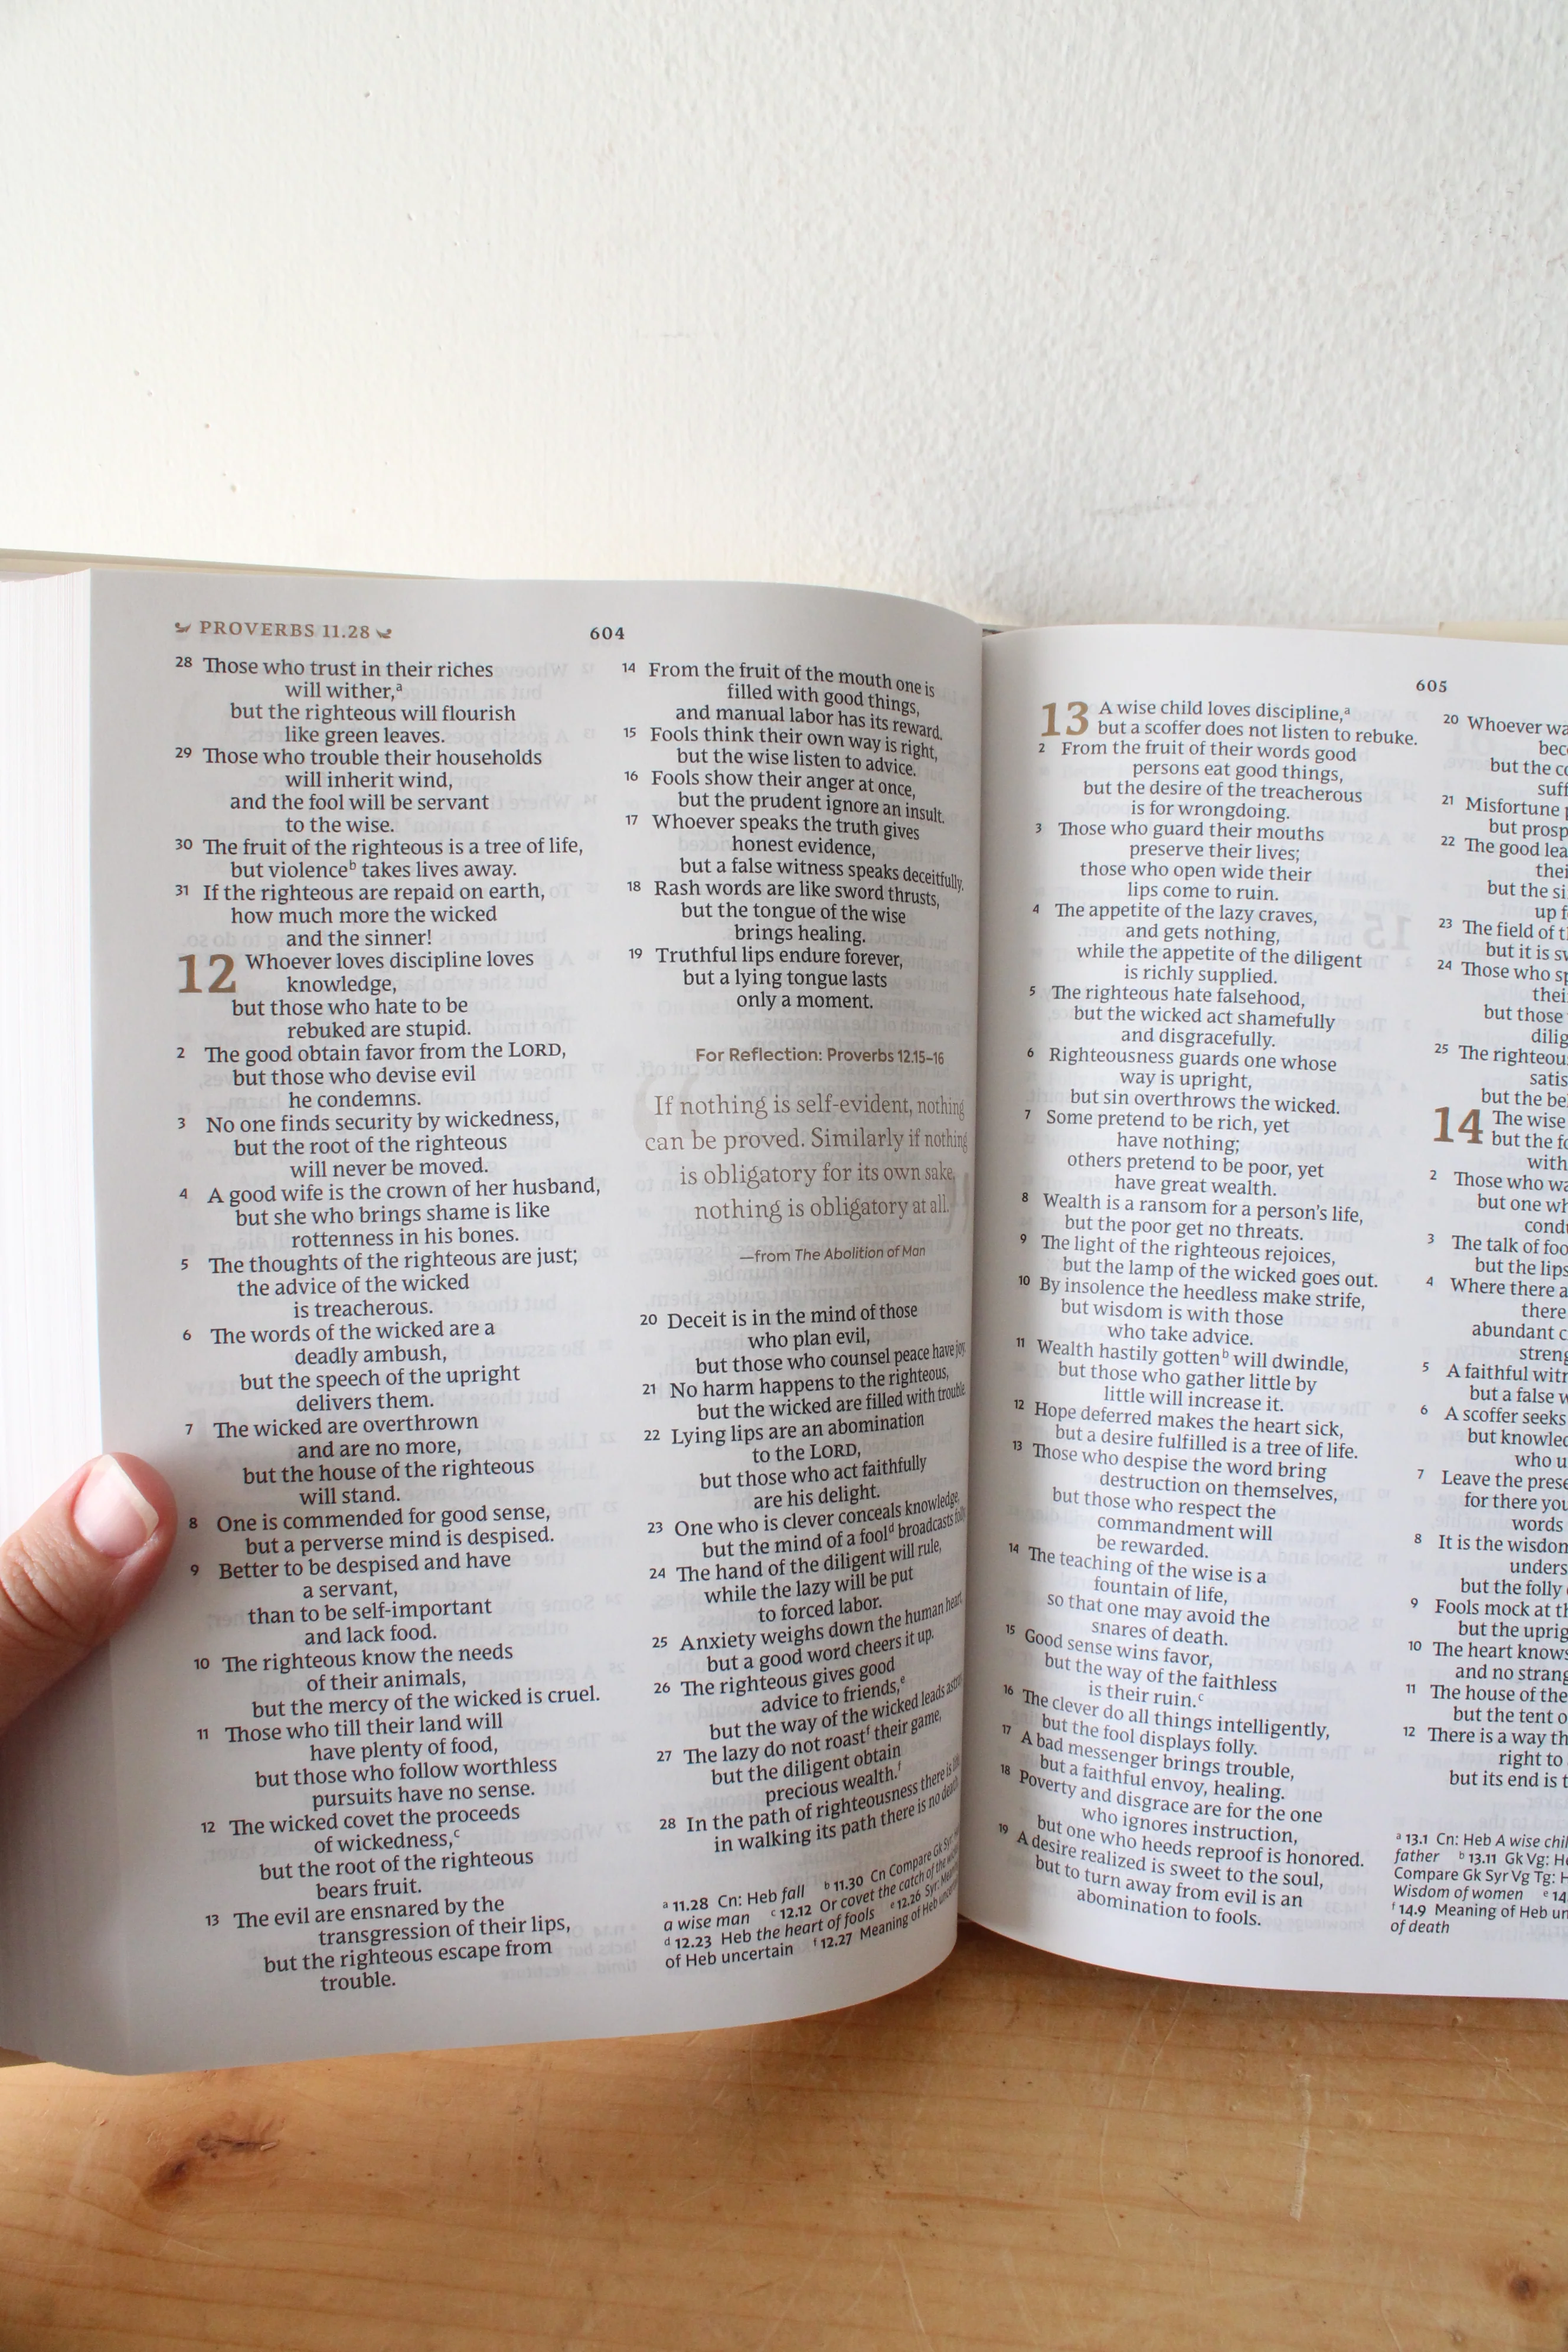 PROVERBS 11.28
604
28 Those who trust in their riches
will wither,a
but the righteous will flourish
like green leaves.
29 Those who trouble their households
will inherit wind,
and the fool will be servant
to the wise.
30 The fruit of the righteous is a tree of life,
but violenceb takes lives away.
31 If the righteous are repaid on earth,
how much more the wicked
and the sinner!
12 Whoever loves discipline loves
knowledge,
but those who hate to be
rebuked are stupid.
2 The good obtain favor from the LORD,
but those who devise evil
he condemns.
3 No one finds security by wickedness,
but the root of the righteous
will never be moved.
4 A good wife is the crown of her husband,
but she who brings shame is like
rottenness in his bones.
5 The thoughts of the righteous are just;
the advice of the wicked
is treacherous.
6 The words of the wicked are a
deadly ambush,
but the speech of the upright
delivers them.
7 The wicked are overthrown
and are no more,
but the house of the righteous
will stand.
8 One is commended for good sense,
but a perverse mind is despised.
9 Better to be despised and have
a servant,
than to be self-important
and lack food.
10 The righteous know the needs
of their animals,
but the mercy of the wicked is cruel.
11 Those who till their land will
have plenty of food,
but those who follow worthless
pursuits have no sense.
12 The wicked covet the proceeds
of wickedness,c
but the root of the righteous
bears fruit.
13 The evil are ensnared by the
transgression of their lips,
but the righteous escape from
trouble.
14 From the fruit of the mouth one is
filled with good things,
and manual labor has its reward.
15 Fools think their own way is right,
but the wise listen to advice.
16 Fools show their anger at once,
but the prudent ignore an insult.
17 Whoever speaks the truth gives
honest evidence,
but a false witness speaks deceitfully.
18 Rash words are like sword thrusts,
but the tongue of the wise
brings healing.
19 Truthful lips endure forever,
but a lying tongue lasts
only a moment.
For Reflection: Proverbs 12.15–16
If nothing is self-evident, nothing
can be proved. Similarly if nothing
is obligatory for its own sake,
nothing is obligatory at all.
—from The Abolition of Man
20 Deceit is in the mind of those
who plan evil,
but those who counsel peace have joy.
21 No harm happens to the righteous,
but the wicked are filled with trouble.
22 Lying lips are an abomination
to the LORD,
but those who act faithfully
are his delight.
23 One who is clever conceals knowledge,
but the mind of a foold broadcasts folly.
24 The hand of the diligent will rule,
while the lazy will be put
to forced labor.
25 Anxiety weighs down the human heart,
but a good word cheers it up.
26 The righteous gives good
advice to friends,e
but the way of the wicked leads astray.
27 The lazy do not roastf their game,
but the diligent obtain
precious wealth.f
28 In the path of righteousness there is life,
in walking its path there is no death.
a 11.28 Cn: Heb fall b 11.30 Cn Compare Gk Syr:
a wise man c 12.12 Or covet the catch of the
d 12.23 Heb the heart of fools e 12.26 Syr: Meaning
of Heb uncertain f 12.27 Meaning of Heb uncertain
605
13 A wise child loves discipline,a
but a scoffer does not listen to rebuke.
2 From the fruit of their words good
persons eat good things,
but the desire of the treacherous
is for wrongdoing.
3 Those who guard their mouths
preserve their lives;
those who open wide their
lips come to ruin.
4 The appetite of the lazy craves,
and gets nothing,
while the appetite of the diligent
is richly supplied.
5 The righteous hate falsehood,
but the wicked act shamefully
and disgracefully.
6 Righteousness guards one whose
way is upright,
but sin overthrows the wicked.
7 Some pretend to be rich, yet
have nothing;
others pretend to be poor, yet
have great wealth.
8 Wealth is a ransom for a person's life,
but the poor get no threats.
9 The light of the righteous rejoices,
but the lamp of the wicked goes out.
10 By insolence the heedless make strife,
but wisdom is with those
who take advice.
11 Wealth hastily gottenb will dwindle,
but those who gather little by
little will increase it.
12 Hope deferred makes the heart sick,
but a desire fulfilled is a tree of life.
13 Those who despise the word bring
destruction on themselves,
but those who respect the
commandment will
be rewarded.
14 The teaching of the wise is a
fountain of life,
so that one may avoid the
snares of death.
15 Good sense wins favor,
but the way of the faithless
is their ruin.c
16 The clever do all things intelligently,
but the fool displays folly.
17 A bad messenger brings trouble,
but a faithful envoy, healing.
18 Poverty and disgrace are for the one
who ignores instruction,
but one who heeds reproof is honored.
19 A desire realized is sweet to the soul,
but to turn away from evil is an
abomination to fools.
20 Whoever
but the
21 Misfortune
but
22 The good
but the
up
23 The field of
but it is
24 Those who
but those
25 The
but the
14 The wise
but the
with
2 Those who
but one
3 The talk of
but the lips
4 Where there
there
abundant
5 A faithful
but a false
6 A scoffer seeks
but
who
7 Leave the
for there you
words
8 It is the wisdom
but the folly
9 Fools mock at
but the
10 The heart knows
and no
11 The house of the
but the tent
12 There is a way
right to
but its end is
a 13.1 Cn: Heb A wise
father b 13.11 Gk Vg:
Compare Gk Syr Vg Tg:
Wisdom of women e
f 14.9 Meaning of Heb
of death